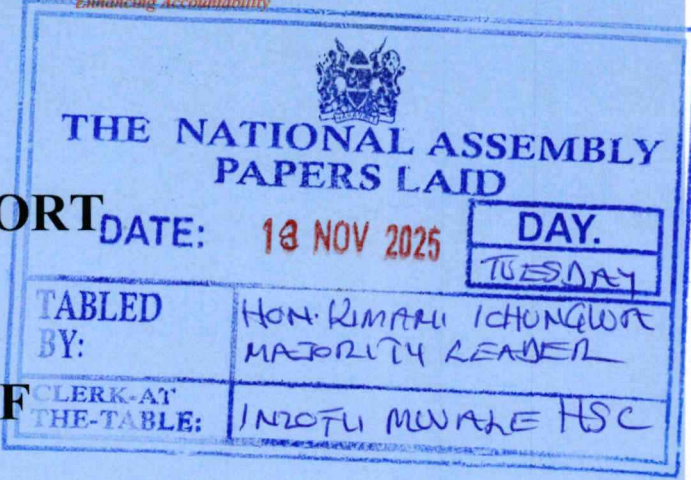 Enhancing Accountability
THE NATIONAL ASSEMBLY
PAPERS LAID
ORT
DATE: 18 NOV 2025
DAY.
TUESDAY
TABLED BY:
HON. KIMANI ICHUNGWA
MAJORITY LEADER
F
CLERK-AT
THE-TABLE:
INZOFU MWALE HSC